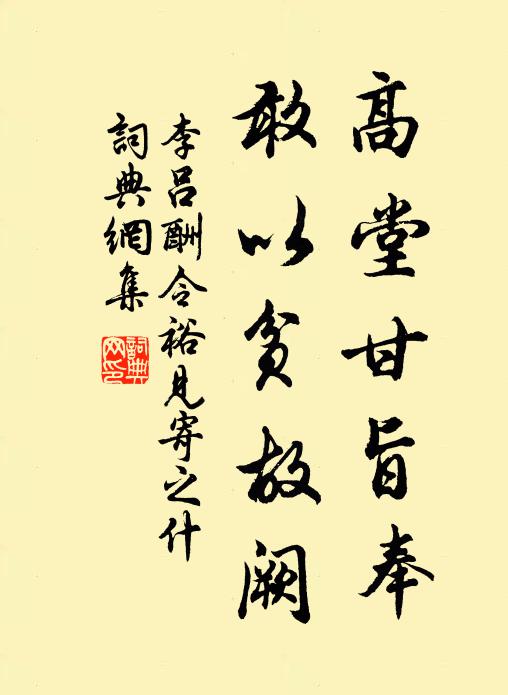 高堂甘旨奉
敢以貧故闕
李呂酬令裕見寄之什
詞典網集
詞典網印